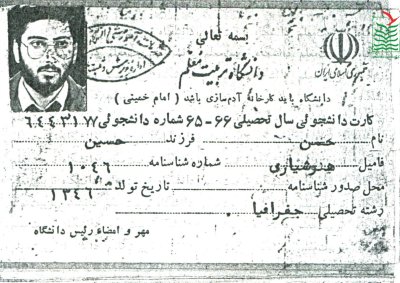 بسمه تعالی
دانشگاه تربیت معلم
جمهوری اسلامی ایران
دانشگاه باید کارخانهٔ آدم‌سازی باشد ( امام خمینی )
کارت دانشجوئی سال تحصیلی ۶۶-۶۵ شماره دانشجوئی ۶۴۴۳۱۷۷
نام حسن فرزند حسین
فامیل هنوشیاری شماره شناسنامه ۱۰۴۶
محل صدور شناسنامه تاریخ تولد ۱۳۴۶
رشته تحصیلی جغرافیا
مهر و امضاء رئیس دانشگاه